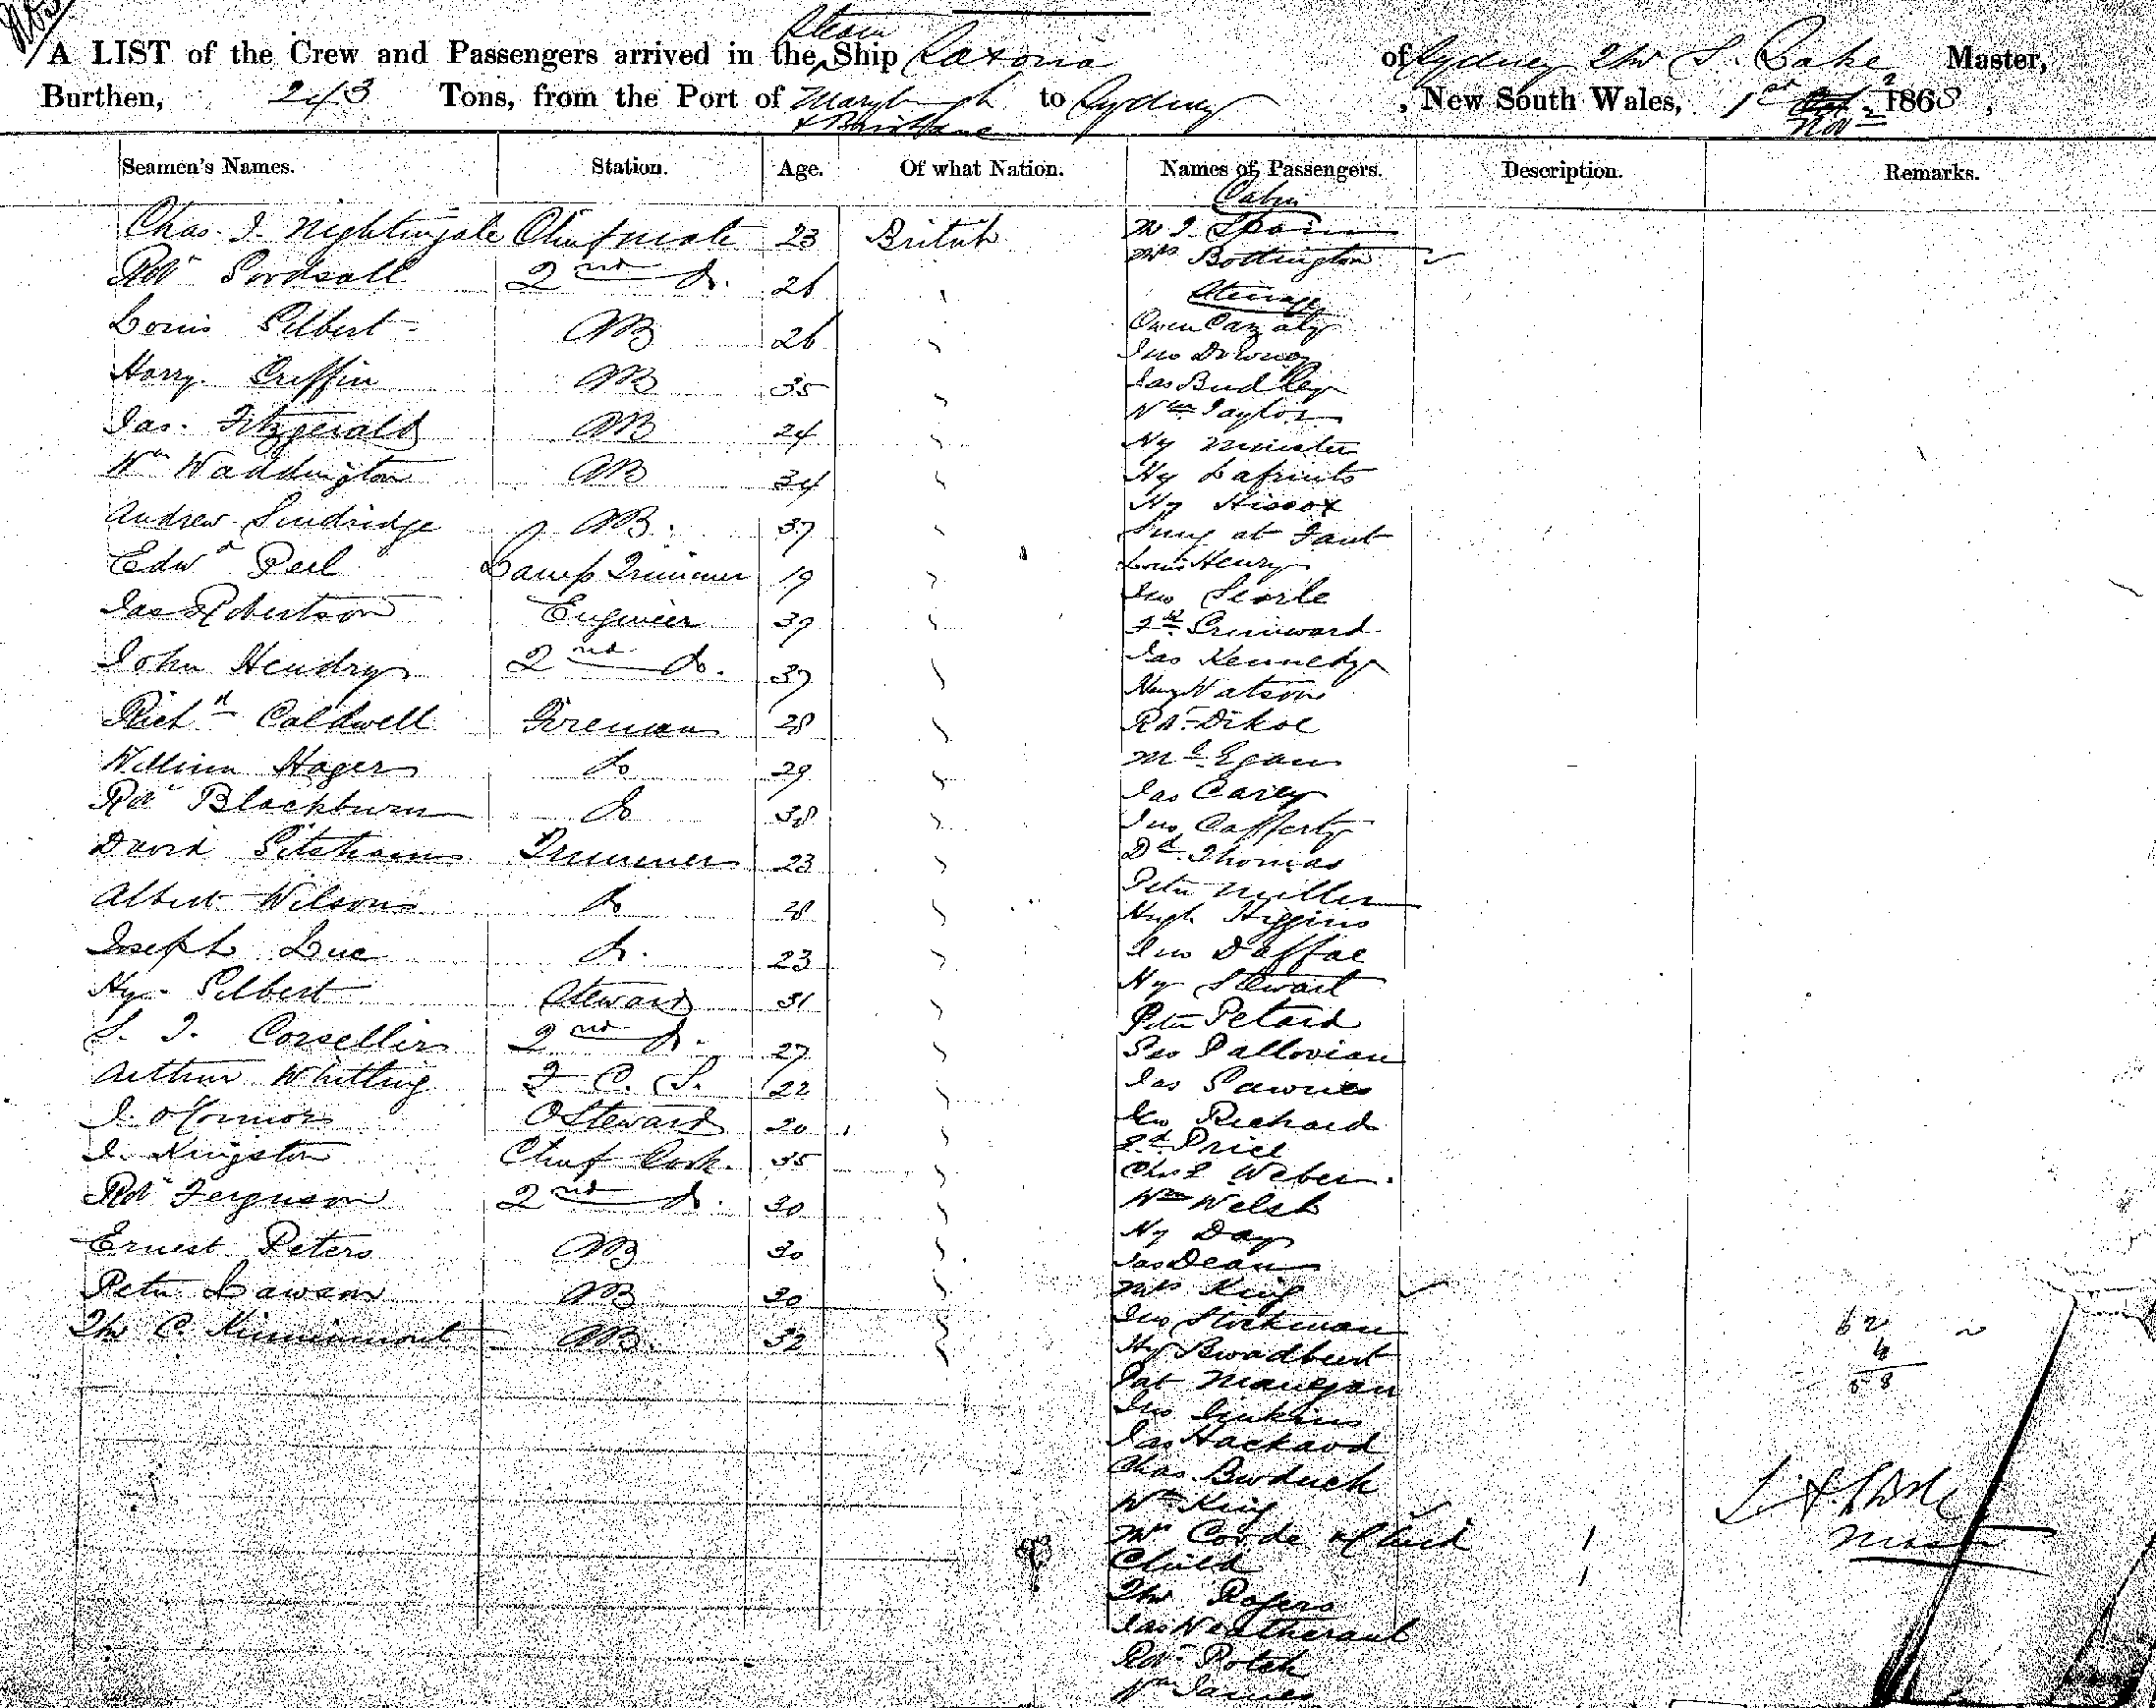 A LIST of the Crew and Passengers arrived in the Steam Ship Saxonia of Sydney Thos S. Lake Master,
Burthen, 243 Tons, from the Port of Maryborough & Brisbane to Sydney, New South Wales, 1st Nov 1868,
Seamen's Names. Station. Age. Of what Nation. Names of Passengers. Description. Remarks.
Cabin
Chas. J. Nightingale Chief mate 23 British
Mrs Bottington
Robt 2nd do. 26
Steerage
Louis Silbert AB 26
Owen Cazaly
Harry Griffin AB 35
Jas Budley
Jas. Fitzgerald AB 24
Wm Taylor
Hy Minister
Wm Waddington AB 34
Hy
Hy Hiscox
Andrew Sindridge AB. 37
Edwd Peel Lamp Trimmer 19
Louis Henry
Jno Searle
Jas Robertson Engineer 39
John Hendry 2nd do. 37
Jas Kennedy
Hy Watson
Richd Caldwell Fireman 28
Robt
Md Egan
William Hager do 29
Jas Carey
Robt Blackburn do 38
Jno Cafferty
David Trimmer 23
Dd Thomas
Peter Miller
Albert Wilson do 28
Hugh Higgins
Joseph Luc do. 23
Jno Daffae
Hy. Silbert Steward 31
Hy Stewart
Peter Petard
S. J. Corsellis 2nd do. 27
Geo
Arthur Whitting F. C. S. 22
Jas
J. O'Connor O Steward 20
Jno Richard
Ed Price
J. Kingston Chief Cook. 35
Chas Weber.
Robt Ferguson 2nd do. 30
Wm Welsh
Hy Day
Ernest Peters AB 30
Jas Dean
Mrs King
Peter Lawson AB 30
Jno Stockman
Thos C. Kinninmont AB. 32
Hy Broadbent
62
4
58
Pat Manegan
Jno Jenkins
Jas
Chas Burduck
Wm King
Mrs Coode & Child
Child
Master
Thos Rogers
Jas
Robt
Wm James